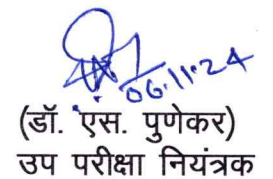 06.11.24
(डॉ. एस. पुणेकर)
उप परीक्षा नियंत्रक